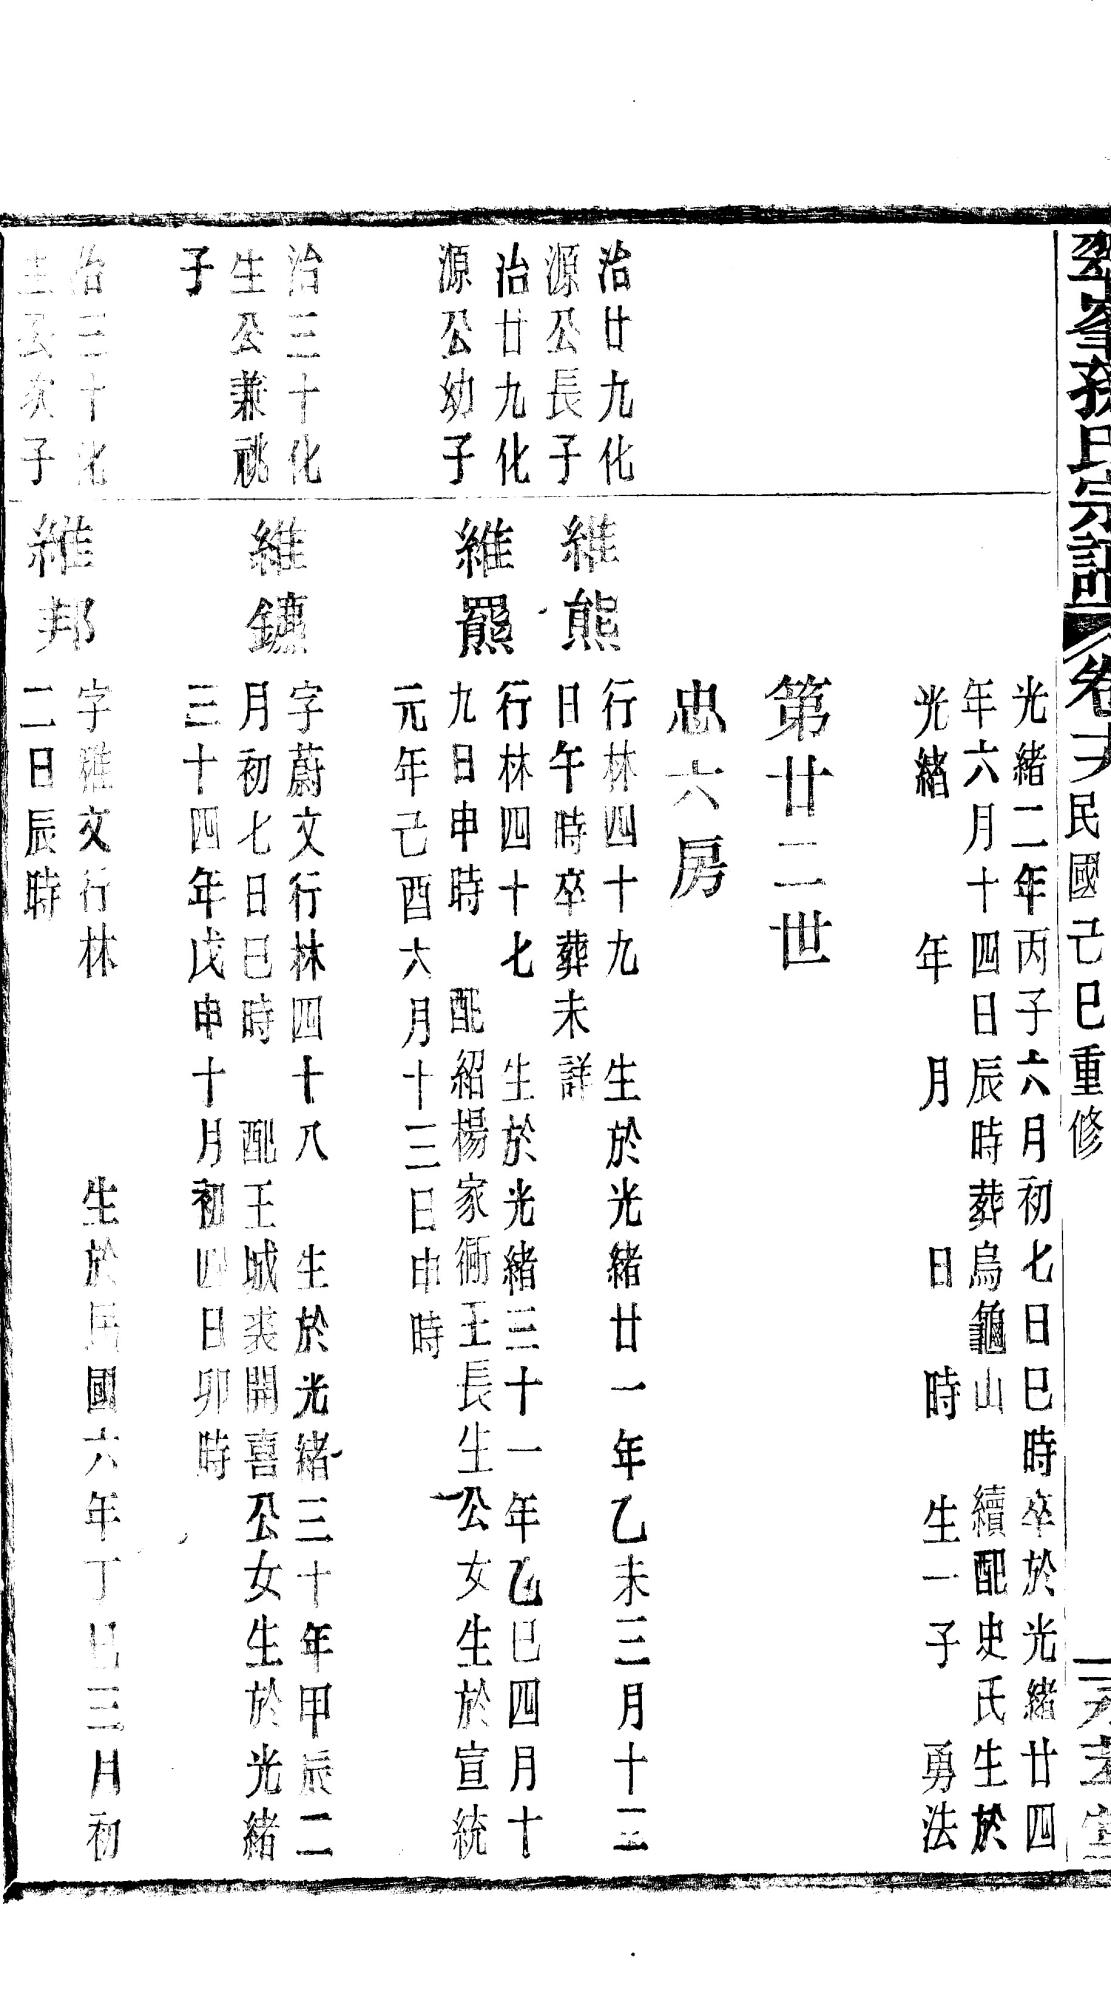 峯孫氏宗譜 卷 民國己巳重修
光緒二年丙子六月初七日巳時卒於光緒廿四
年六月十四日辰時葬烏龜山 續配史氏生於
光緒 年 月 日 時 生一子 勇法
第廿二世
忠六房
治廿九化
源公長子
維熊
行林四十九 生於光緒廿一年乙未三月十三
日午時卒葬未詳
治廿九化
源公幼子
維羆
行林四十七 生於光緒三十一年乙巳四月十
九日申時 配紹楊家衕王長生公女生於宣統
元年己酉六月十三日申時
治三十化
生公兼祧
子
維鑣
字蔚文行林四十八 生於光緒三十年甲辰二
月初七日巳時 配王城裘開喜公女生於光緒
三十四年戊申十月初四日卯時
治三十化
生公次子
維邦
字雅文行林 生於民國六年丁巳三月初
二日辰時